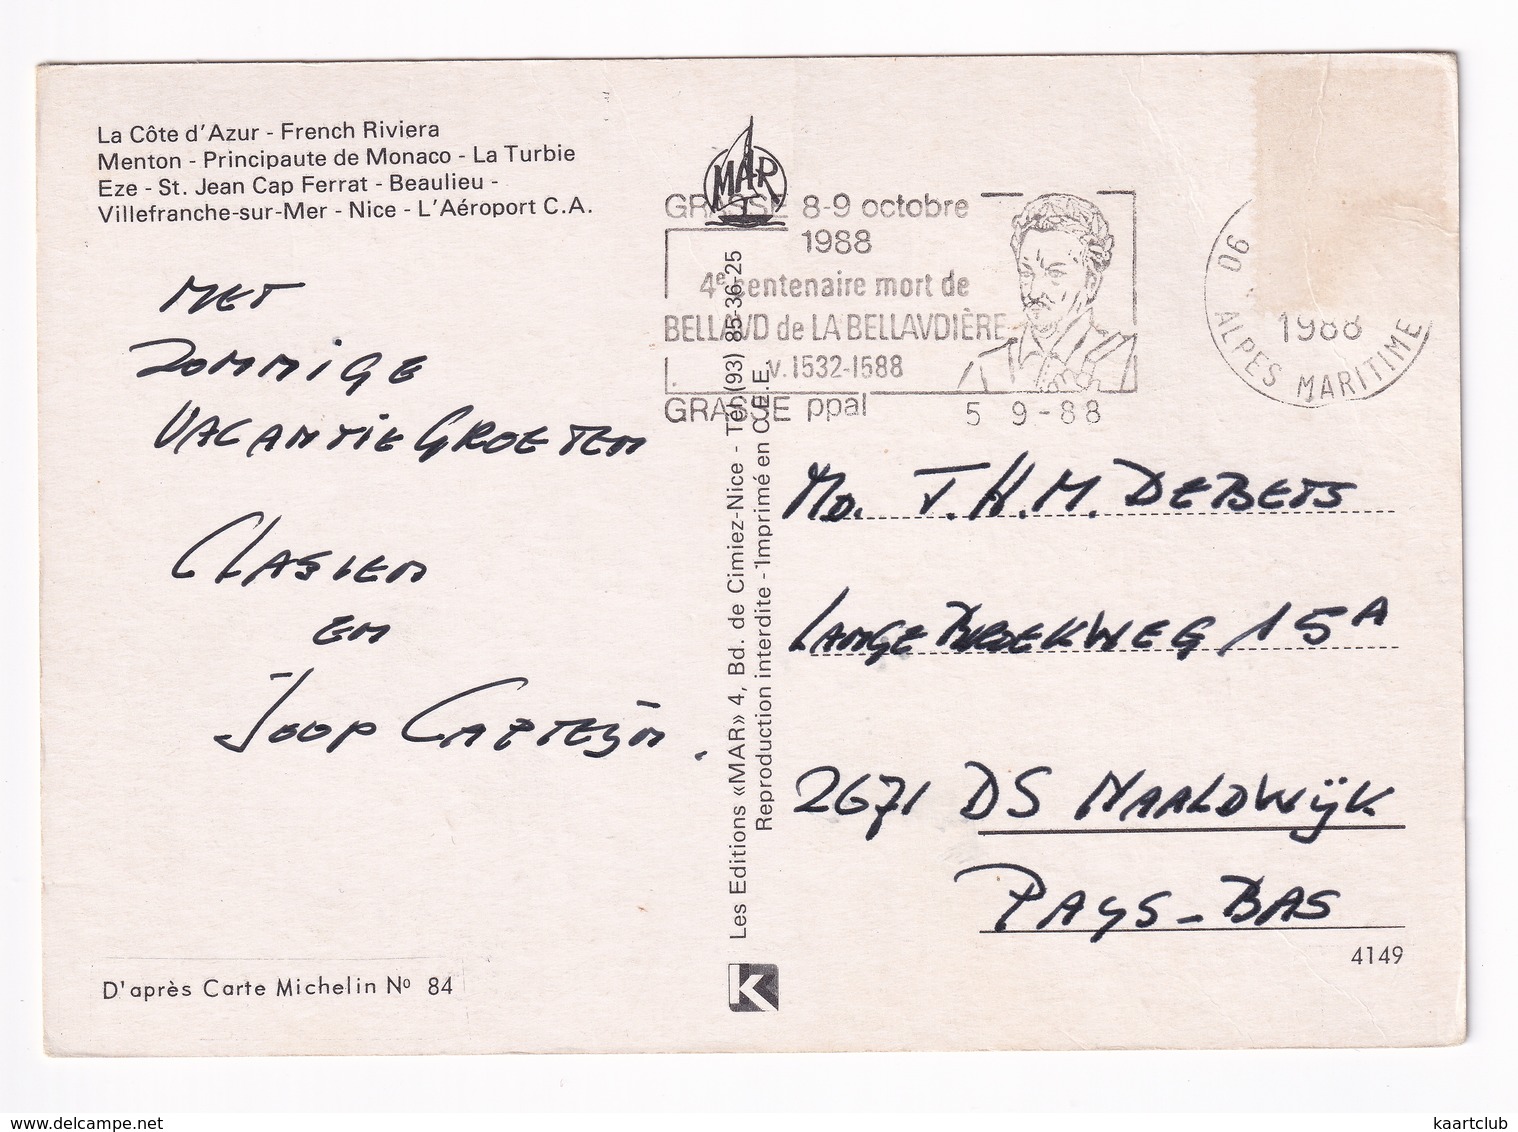 La Côte d'Azur - French Riviera
Menton - Principaute de Monaco - La Turbie
Eze - St. Jean Cap Ferrat - Beaulieu -
Villefranche-sur-Mer - Nice - L'Aéroport C.A.
MAR
GRASSE 8-9 octobre
1988
4e centenaire mort de
BELLAVD de LA BELLAVDIÈRE
v. 1532-1588
GRASSE ppal 5 9-88
06
1988
ALPES MARITIME
MET
ZOMMIGE
VACANTIE GROETEN
CLASIEN
EN
JOOP CAPTEIJN.
MD. T.H.M. DEBETS
LANGE BROEKWEG 15A
2671 DS NAALDWIJK
PAYS-BAS
4149
Les Editions «MAR» 4, Bd. de Cimiez-Nice - Tél. (93) 85-36-25
Reproduction interdite - Imprimé en C.E.E.
D'après Carte Michelin No 84
K
delcampe.net
kaartclub